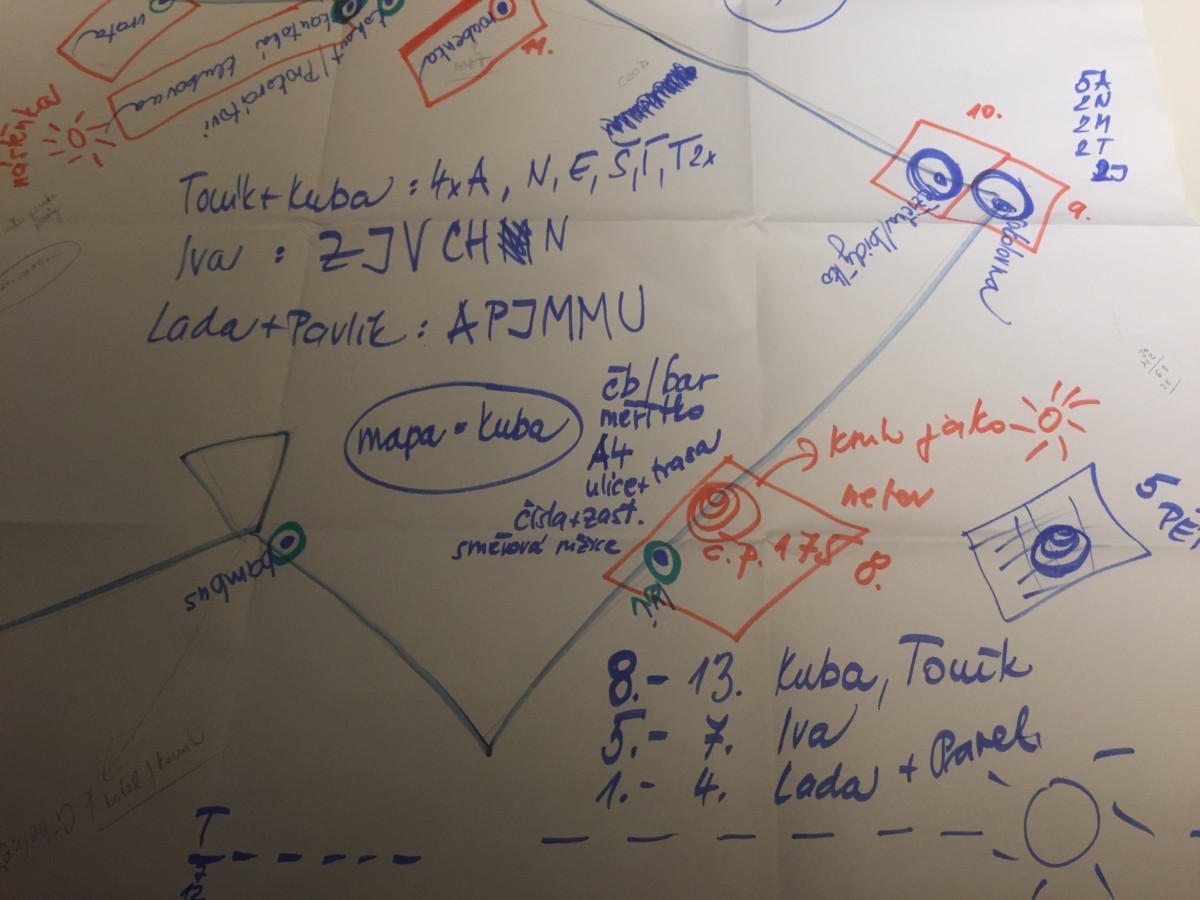 vrata
klubovna
roubenka
11.
nástěnka
10.
9.
5A
2N
2M
2T
2J
Toník + Kuba : 4xA, N, E, Š, T, T2x
Iva : Z J V CH N
Lada + Pavlík : A P J M M U
mapa = Kuba
čb / bar
měřítko
A4
ulice + trasa
čísla + zast.
směrová růžice
kruh jako
netov
č.p. 175
8.
5 PĚT
bambus
8. - 13. Kuba, Toník
5. - 7. Iva
1. - 4. Lada + Pavel
T